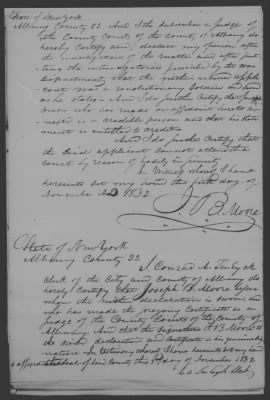 State of New York
Albany County SS. And I the subscriber a Judge of
the County Court of the county of Albany do
hereby Certify and declare my opinion after
the investigation of the matter and after put-
ting the interrogatories prescribed by the war
department, that the within named appli-
cant was a revolutionary Soldier and
as he states. And I do further Certify that
who has made an affidavit
is a credible person and that his state-
ment is entitled to credit.
And I do further Certify that
the said applicant cannot attend the
Court by reason of bodily infirmity
In Witness whereof I have
hereunto set my hand the first day of
November AD 1832
J. B. Moore
State of New York
Albany County SS.
I, Conrad A. Ten Eyck
Clerk of the City and County of Albany do
hereby Certify that Joseph B. Moore before
whom the within declaration is sworn and
who has made the foregoing Certificate is a
Judge of the County Courts of the County of
Albany. And that the signature J B Moore to
the said declaration and Certificate is his genuine sig-
nature. In testimony whereof I have hereunto set my hand
& affixed the seal of said County this day of November 1832
Ca Ten Eyck Clerk